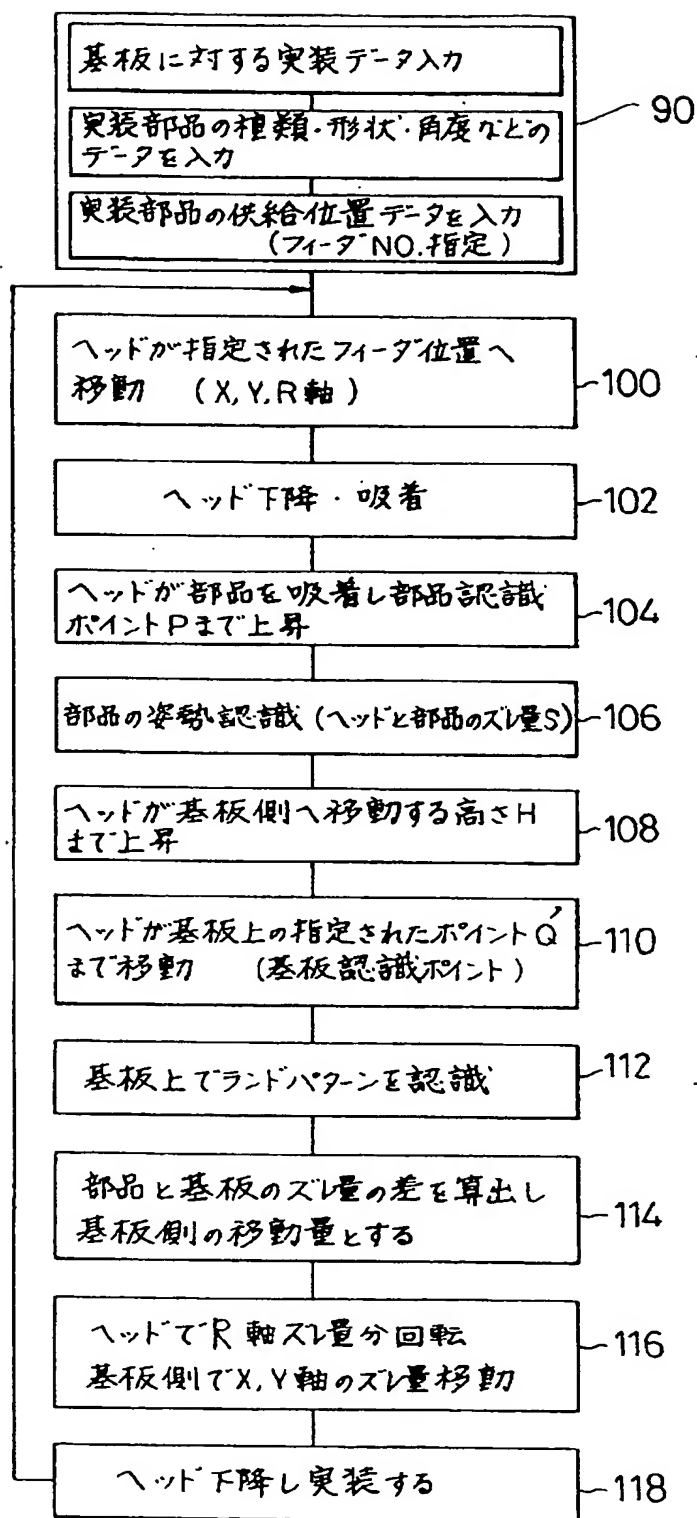 基板に対する実装データ入力
90
実装部品の種類・形状・角度などの
データを入力
実装部品の供給位置データを入力
(フィーダNO.指定)
ヘッドが指定されたフィーダ位置へ
移動 (X,Y,R軸)
100
ヘッド下降・吸着
102
ヘッドが部品を吸着し部品認識
ポイントPまで上昇
104
部品の姿勢認識(ヘッドと部品のズレ量S)
106
ヘッドが基板側へ移動する高さH
まで上昇
108
ヘッドが基板上の指定されたポイントQ'
まで移動 (基板認識ポイント)
110
基板上でランドパターンを認識
112
部品と基板のズレ量の差を算出し
基板側の移動量とする
114
ヘッドでR軸ズレ量分回転
基板側でX,Y軸のズレ量移動
116
ヘッド下降し実装する
118